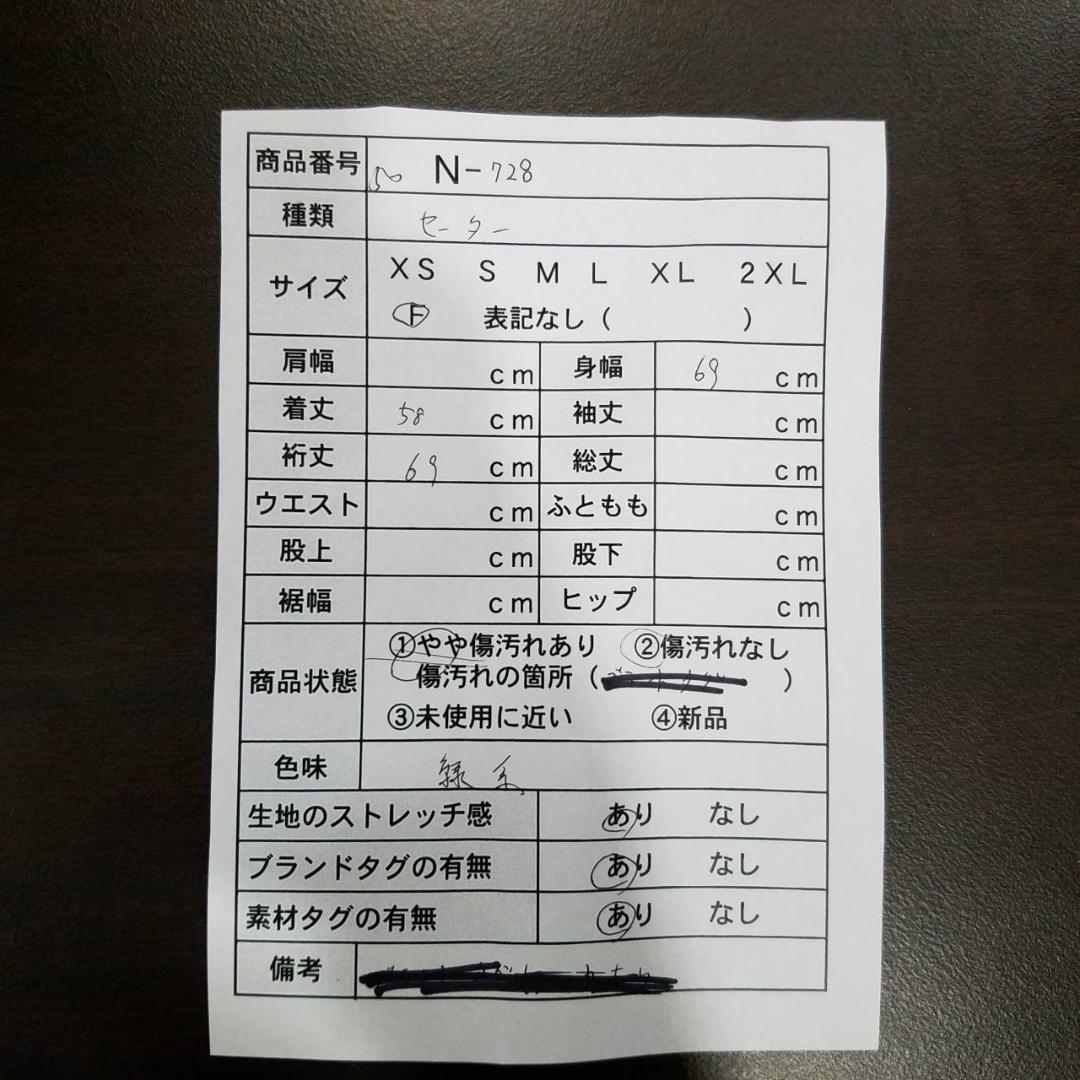 商品番号 50 N-728
種類 セーター
サイズ XS S M L XL 2XL
F 表記なし（ ）
肩幅 cm 身幅 69 cm
着丈 58 cm 袖丈 cm
裄丈 69 cm 総丈 cm
ウエスト cm ふともも cm
股上 cm 股下 cm
裾幅 cm ヒップ cm
商品状態 ①やや傷汚れあり ②傷汚れなし
傷汚れの箇所（ ）
③未使用に近い ④新品
色味 緑系
生地のストレッチ感 あり なし
ブランドタグの有無 あり なし
素材タグの有無 あり なし
備考